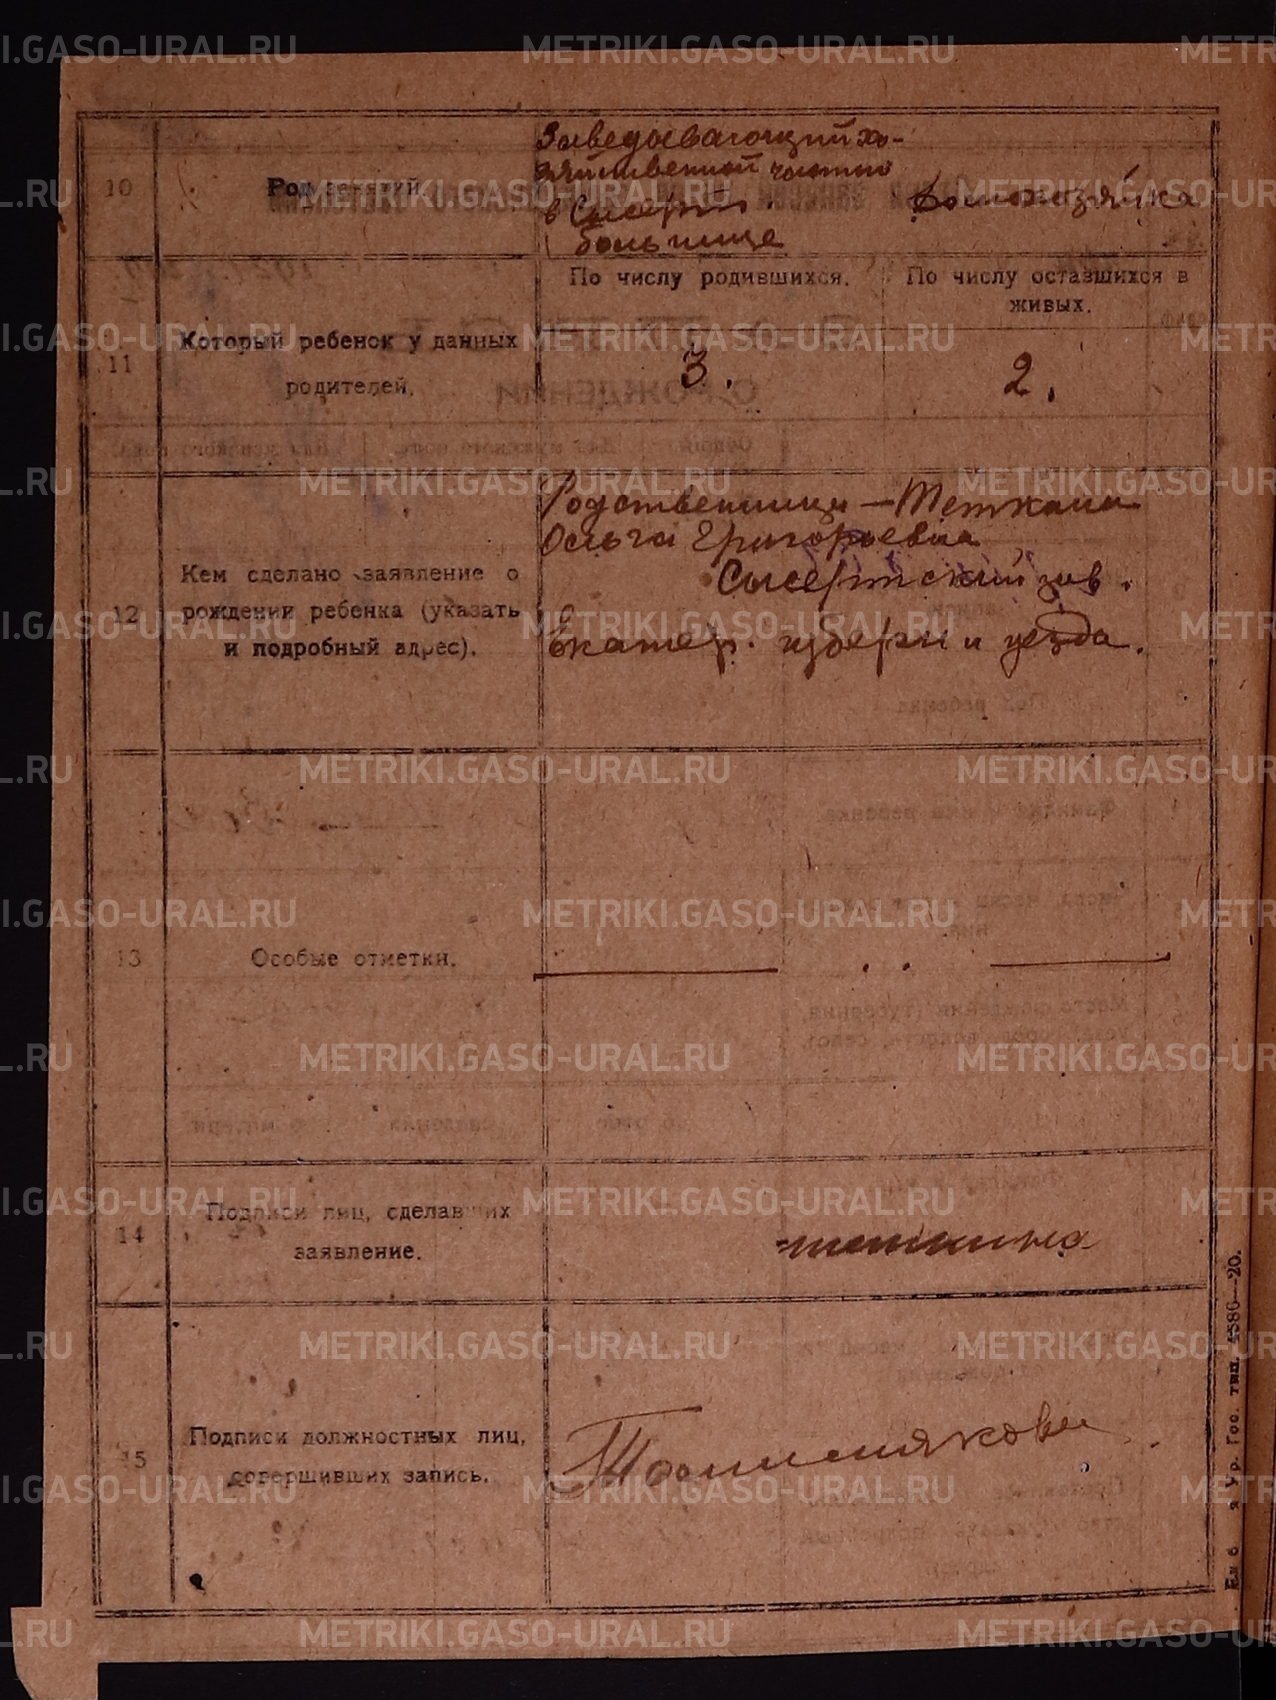 10
Род занятий.
Заведывающий хо-
зяйственной частью
в Сысерт.
больнице
Домохозяйка
11
Который ребенок у данных
родителей.
По числу родившихся.
По числу оставшихся в
живых.
3.
2.
12
Кем сделано заявление о
рождении ребенка (указать
и подробный адрес).
Родственницы —
Ольга Григорьевна
Сысертский зав.
Екатер. губерн и уезда.
13
Особые отметки.
14
Подписи лиц, сделавших
заявление.
15
Подписи должностных лиц,
совершивших запись.
Ур. Гос. тип. 4386—20.
METRIKI.GASO-URAL.RU